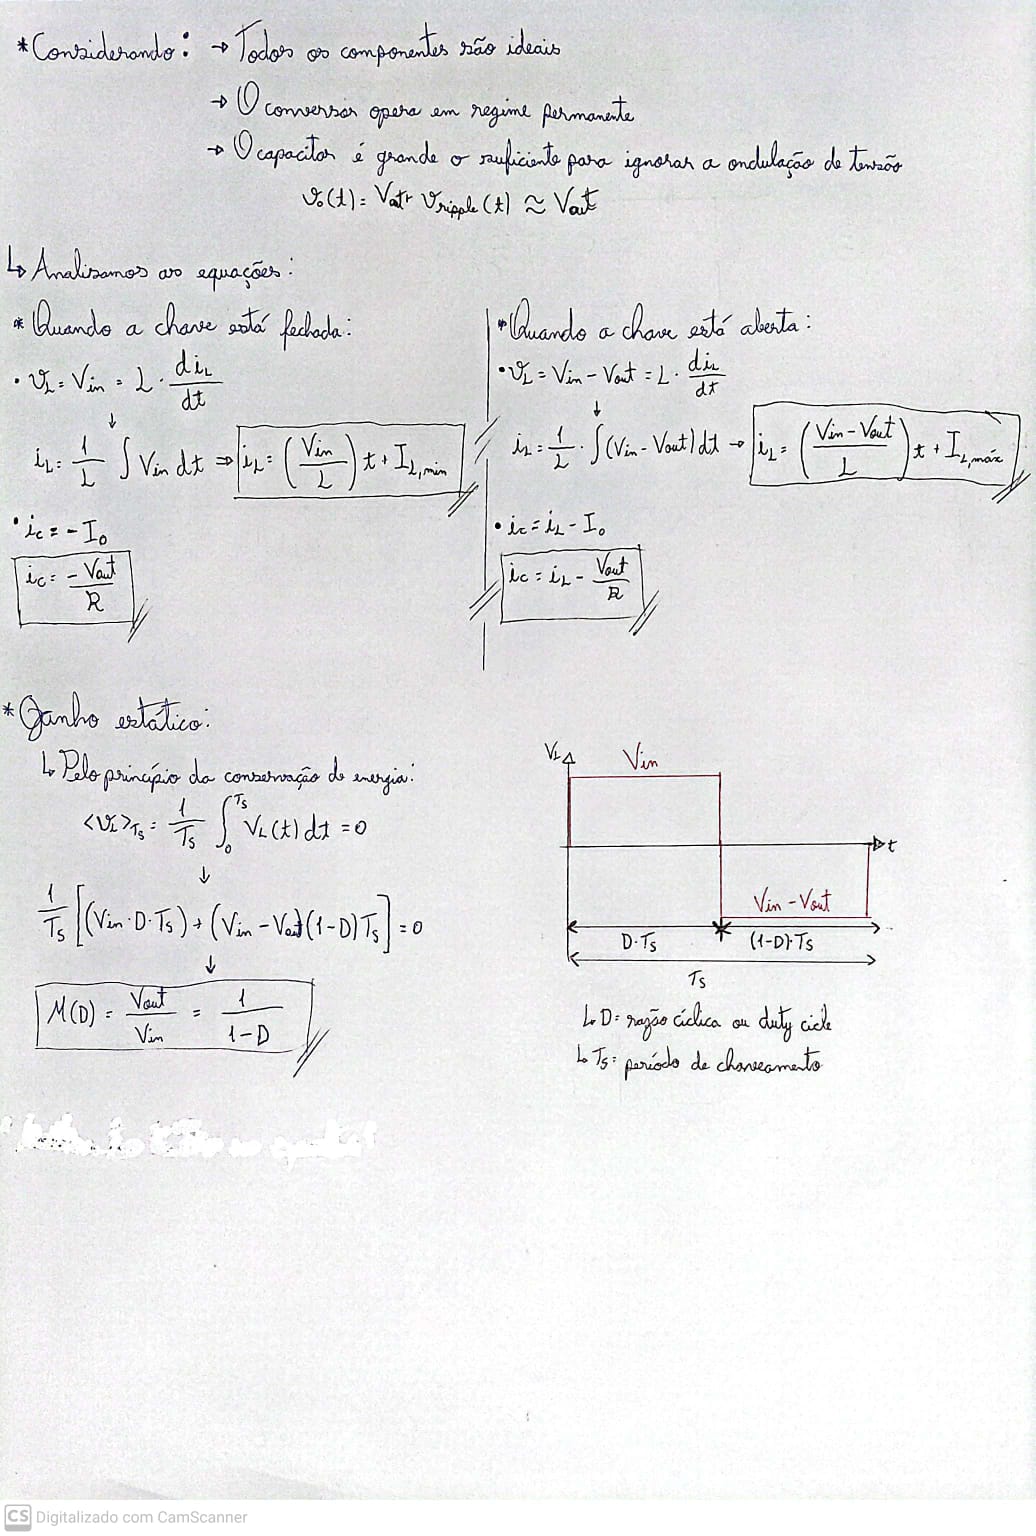 *Considerando: → Todos os componentes são ideais
→ O conversor opera em regime permanente
→ O capacitor é grande o suficiente para ignorar a ondulação de tensão
v₀(t) = Vout + Vripple(t) ≈ Vout
↳ Analisamos as equações:
* Quando a chave está fechada:
• v_L = Vin = L · di_L/dt
↓
i_L = 1/L ∫ Vin dt ⇒ i_L = (Vin/L) t + I_L,min
• i_c = - I₀
i_c = - Vout/R
* Quando a chave está aberta:
• v_L = Vin - Vout = L · di_L/dt
↓
i_L = 1/L · ∫(Vin - Vout) dt → i_L = (Vin - Vout/L) t + I_L,máx
• i_c = i_L - I₀
i_c = i_L - Vout/R
* Ganho estático:
↳ Pelo princípio da conservação de energia:
<v_L>_Ts = 1/Ts ∫₀^Ts V_L(t) dt = 0
↓
1/Ts [(Vin · D · Ts) + (Vin - Vout)(1-D) Ts] = 0
↓
M(D) = Vout/Vin = 1/1-D
V_L
Vin
t
Vin - Vout
D·Ts (1-D)·Ts
Ts
↳ D = razão cíclica ou duty cicle
↳ Ts = período de chaveamento
CS Digitalizado com CamScanner